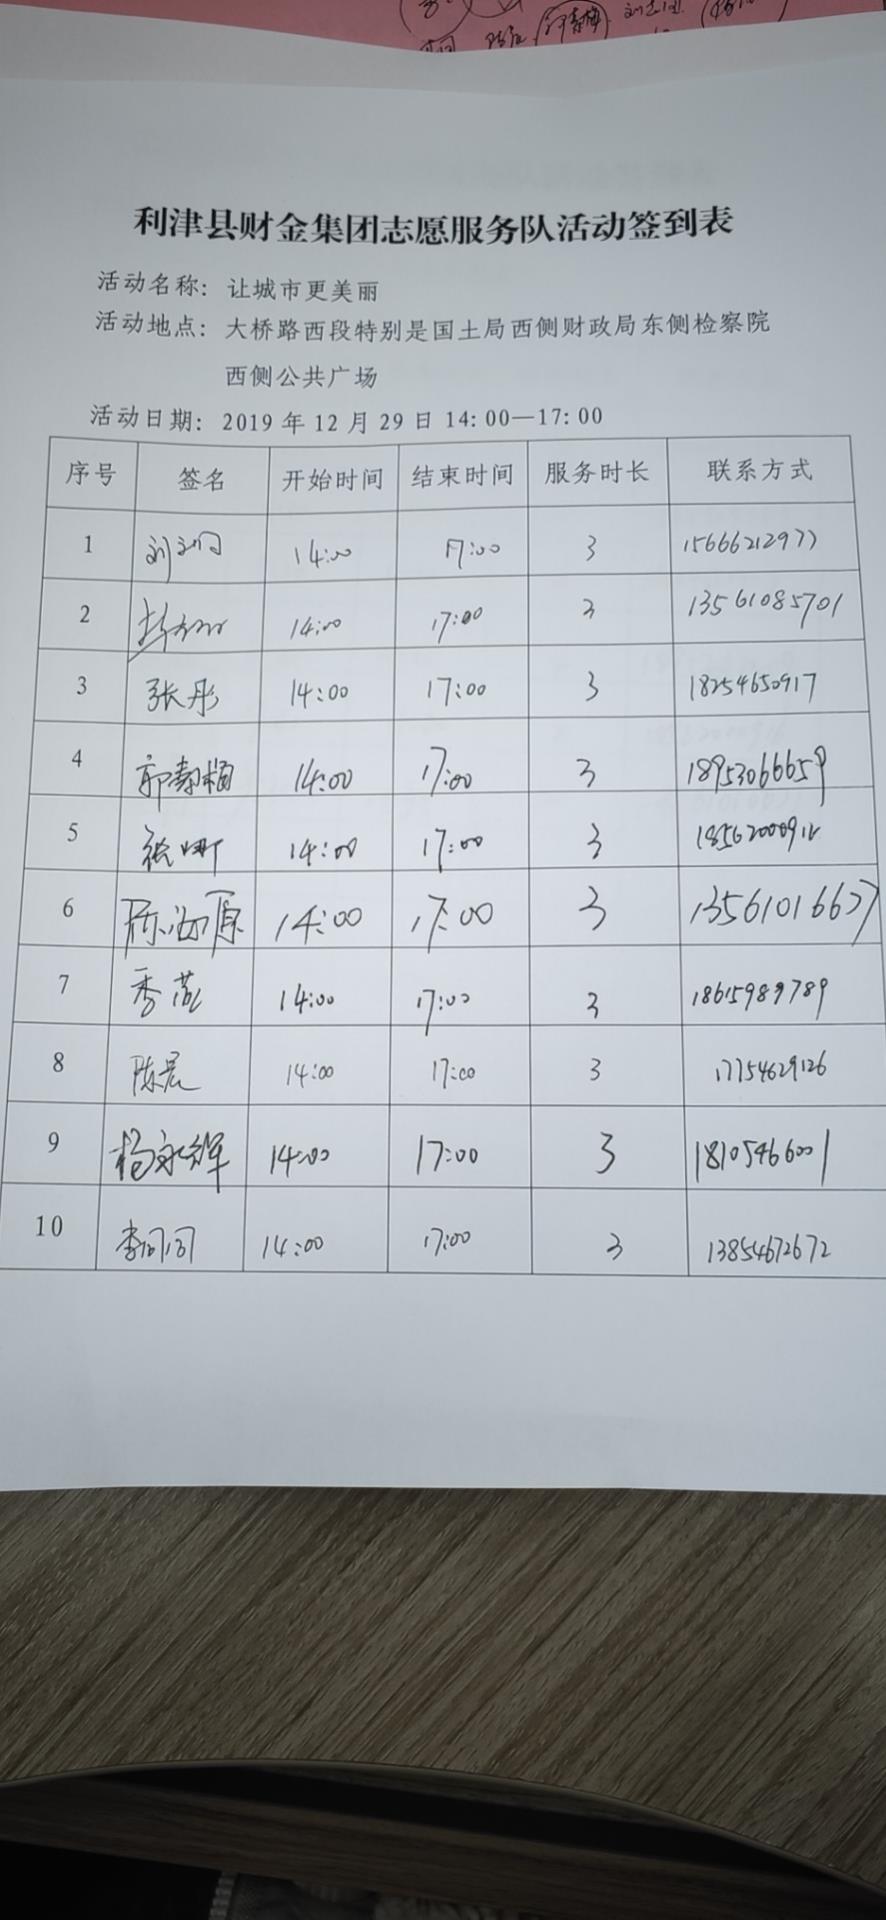 利津县财金集团志愿服务队活动签到表
活动名称：让城市更美丽
活动地点：大桥路西段特别是国土局西侧财政局东侧检察院
西侧公共广场
活动日期：2019年12月29日14:00—17:00
序号 签名 开始时间 结束时间 服务时长 联系方式
1 14:00 17:00 3 15666212977
2 14:00 17:00 3 13561085701
3 张彤 14:00 17:00 3 18254650917
4 14:00 17:00 3 18953066659
5 14:00 17:00 3
6 陈海原 14:00 17:00 3 13561016677
7 季燕 14:00 17:00 3 18615989789
8 陈晨 14:00 17:00 3 17754629126
9 杨永辉 14:00 17:00 3 18105466001
10 李同同 14:00 17:00 3 13854672672